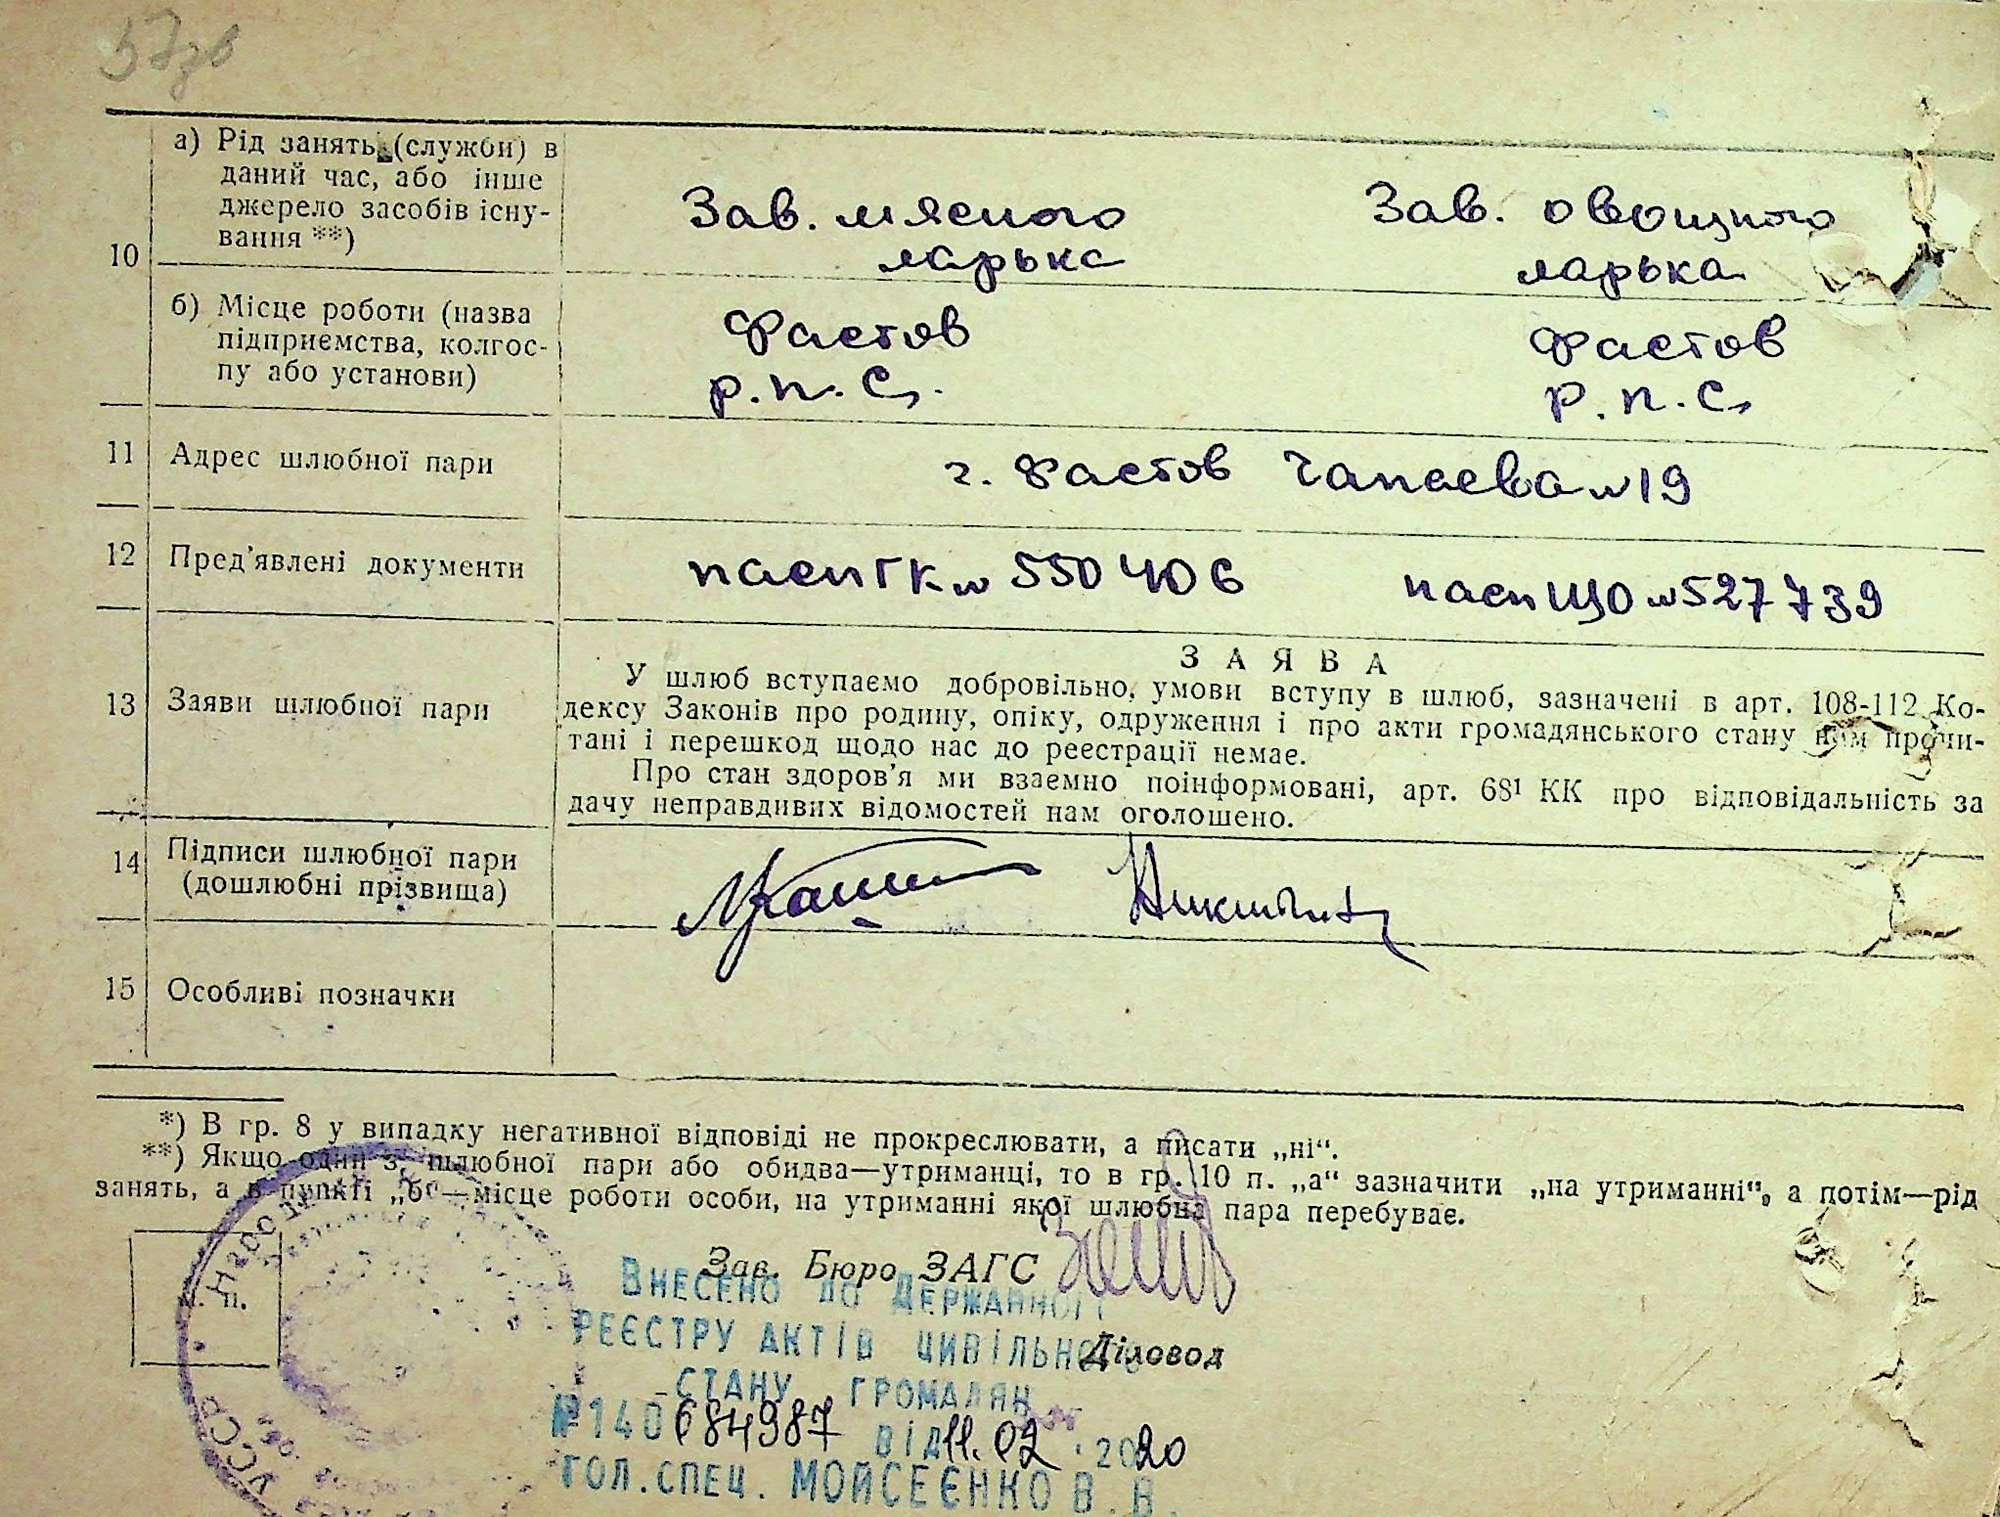 37зв
10
а) Рід занять (служби) в
даний час, або інше
джерело засобів існу-
вання **)
Зав. мясного
ларька
Зав. овощного
ларька
б) Місце роботи (назва
підприємства, колгос-
пу або установи)
Фастов
р.п.с.
Фастов
р.п.с
11 Адрес шлюбної пари
г. Фастов Чапаева №19
12 Пред'явлені документи
пасп ГК № 550406
пасп ЩО № 527739
13 Заяви шлюбної пари
ЗАЯВА
У шлюб вступаємо добровільно, умови вступу в шлюб, зазначені в арт. 108-112 Ко-
дексу Законів про родину, опіку, одруження і про акти громадянського стану нам прочи-
тані і перешкод щодо нас до реєстрації немає.
Про стан здоров'я ми взаємно поінформовані, арт. 68¹ КК про відповідальність за
дачу неправдивих відомостей нам оголошено.
14 Підписи шлюбної пари
(дошлюбні прізвища)
15 Особливі позначки
*) В гр. 8 у випадку негативної відповіді не прокреслювати, а писати „ні“.
**) Якщо один з шлюбної пари або обидва—утриманці, то в гр. 10 п. „а“ зазначити „на утриманні“, а потім—рід
занять, а в пункті „б“—місце роботи особи, на утриманні якої шлюбна пара перебуває.
м. п.
Зав. Бюро ЗАГС
Діловод
Внесено до Державного
реєстру актів цивільного
стану громадян
№140684987 від 11.02.2020
гол.спец. Мойсеєнко В.В.
Народний
УССР